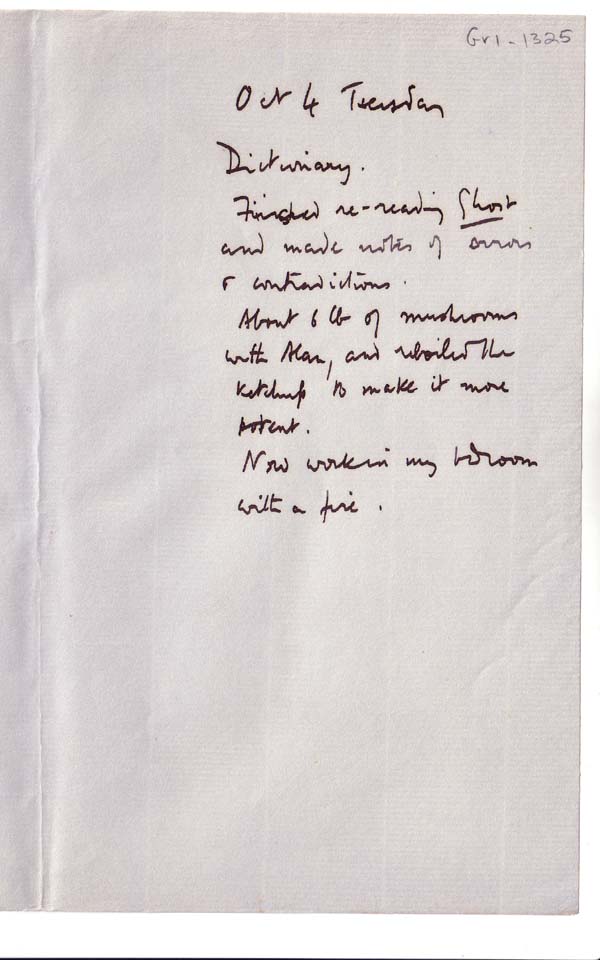 Gr1-1325
Oct 4 Tuesday
Dictionary.
Finished re-reading Ghost
and made notes of errors
& contradictions.
About 6 lb of mushrooms
with Alan, and reboiled the
ketchup to make it more
potent.
Now work in my bedroom
with a fire.